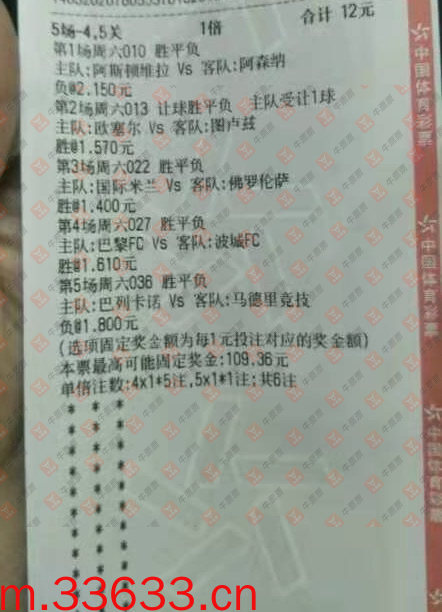 合计 12元
5场-4,5关 1倍
第1场周六010 胜平负
主队:阿斯顿维拉 Vs 客队:阿森纳
负@2.150元
第2场周六013 让球胜平负 主队受让1球
主队:欧塞尔 Vs 客队:图卢兹
胜@1.570元
第3场周六022 胜平负
主队:国际米兰 Vs 客队:佛罗伦萨
胜@1.400元
第4场周六027 胜平负
主队:巴黎FC Vs 客队:波城FC
胜@1.610元
第5场周六036 胜平负
主队:巴列卡诺 Vs 客队:马德里竞技
负@1.800元
(选项固定奖金额为每1元投注对应的奖金额)
本票最高可能固定奖金:109.36元
单倍注数:4x1*5注,5x1*1注;共6注
中国体育彩票
m.33633.cn